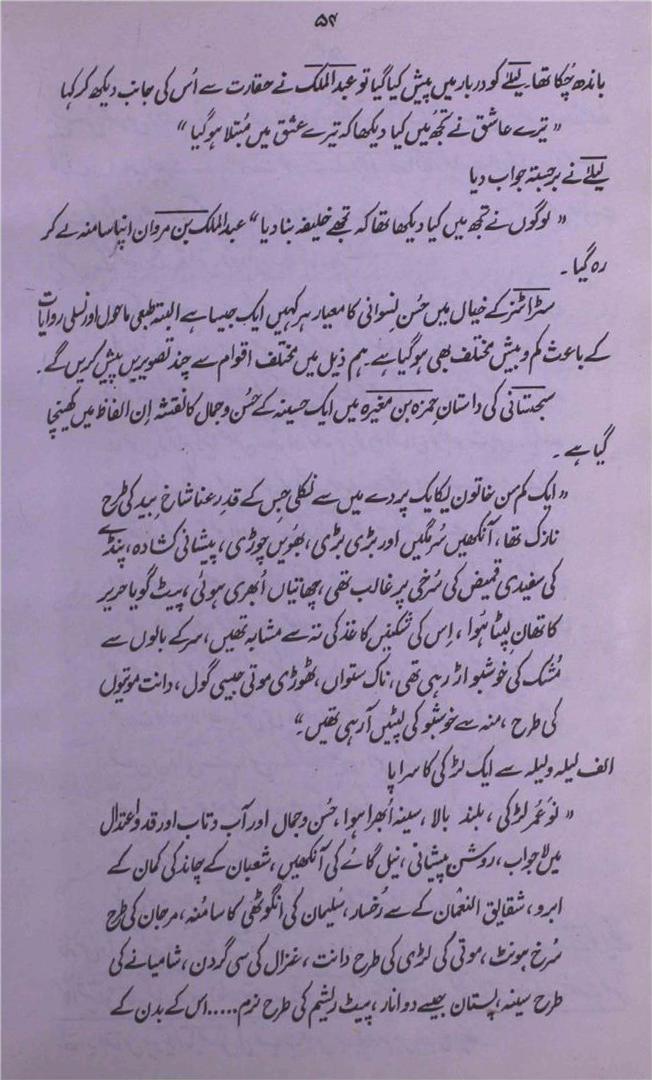 ۵۴
باندھ چُکا تھا۔ لیلےٰ کو دربار میں پیش کیا گیا تو عبدالملک نے حقارت سے اُس کی جانب دیکھ کر کہا
”تیرے عاشق نے تجھ میں کیا دیکھا کہ تیرے عشق میں مُبتلا ہو گیا“
لیلےٰ نے برجستہ جواب دیا
”لوگوں نے تجھ میں کیا دیکھا تھا کہ تجھے خلیفہ بنا دیا“ عبدالملک بن مروان اپنا سا منہ لے کر
رہ گیا۔
سٹراٹنز کے خیال میں حُسن نسوانی کا معیار ہر کہیں ایک جیسا ہے البتہ طبعی ماحول اور نسلی روایات
کے باعث کم و بیش مختلف بھی ہو گیا ہے۔ ہم ذیل میں مختلف اقوام سے چند تصویریں پیش کریں گے۔
سجستانی کی داستان حمزہ بن مغیرہ میں ایک حسینہ کے حُسن و جمال کا نقشہ اِن الفاظ میں کھینچا
گیا ہے۔
”ایک کم سن خاتون یکایک پردے میں سے نکلی جس کے قدِ رعنا شاخِ بید کی طرح
نازک تھا، آنکھیں سُرمگیں اور بڑی بڑی، بھَویں چوڑی، پیشانی کشادہ، پنڈے
کی سفیدی قمیض کی سُرخی پر غالب تھی، چھاتیاں اُبھری ہوئی، پیٹ گویا حریر
کا تھان لپٹا ہُوا، اِس کی شکنیں کاغذ کی تہ سے مشابہ تھیں، سر کے بالوں سے
مُشک کی خوشبو اڑ رہی تھی، ناک ستواں، ٹھوڑی موتی جیسی گول، دانت موتیوں
کی طرح، منہ سے خوشبو کی لپٹیں آ رہی تھیں۔“
الف لیلہ و لیلہ سے ایک لڑکی کا سراپا
”نوعُمر لڑکی، بلند بالا، سینہ اُبھرا ہوا، حُسن و جمال اور آب و تاب اور قد و اعتدال
میں لاجواب، روشن پیشانی، نیل گائے کی آنکھیں، شعبان کے چاند کی کمان کے
ابرو، شقایق النعُمان کے سے رُخسار، سُلیمان کی انگوٹھی کا سا مُنہ، مرجان کی طرح
سُرخ ہونٹ، موتی کی لڑی کی طرح دانت، غزال کی سی گردن، شامیانے کی
طرح سینہ، پستان جیسے دو انار، پیٹ ریشم کی طرح نرم.....اس کے بدن کے